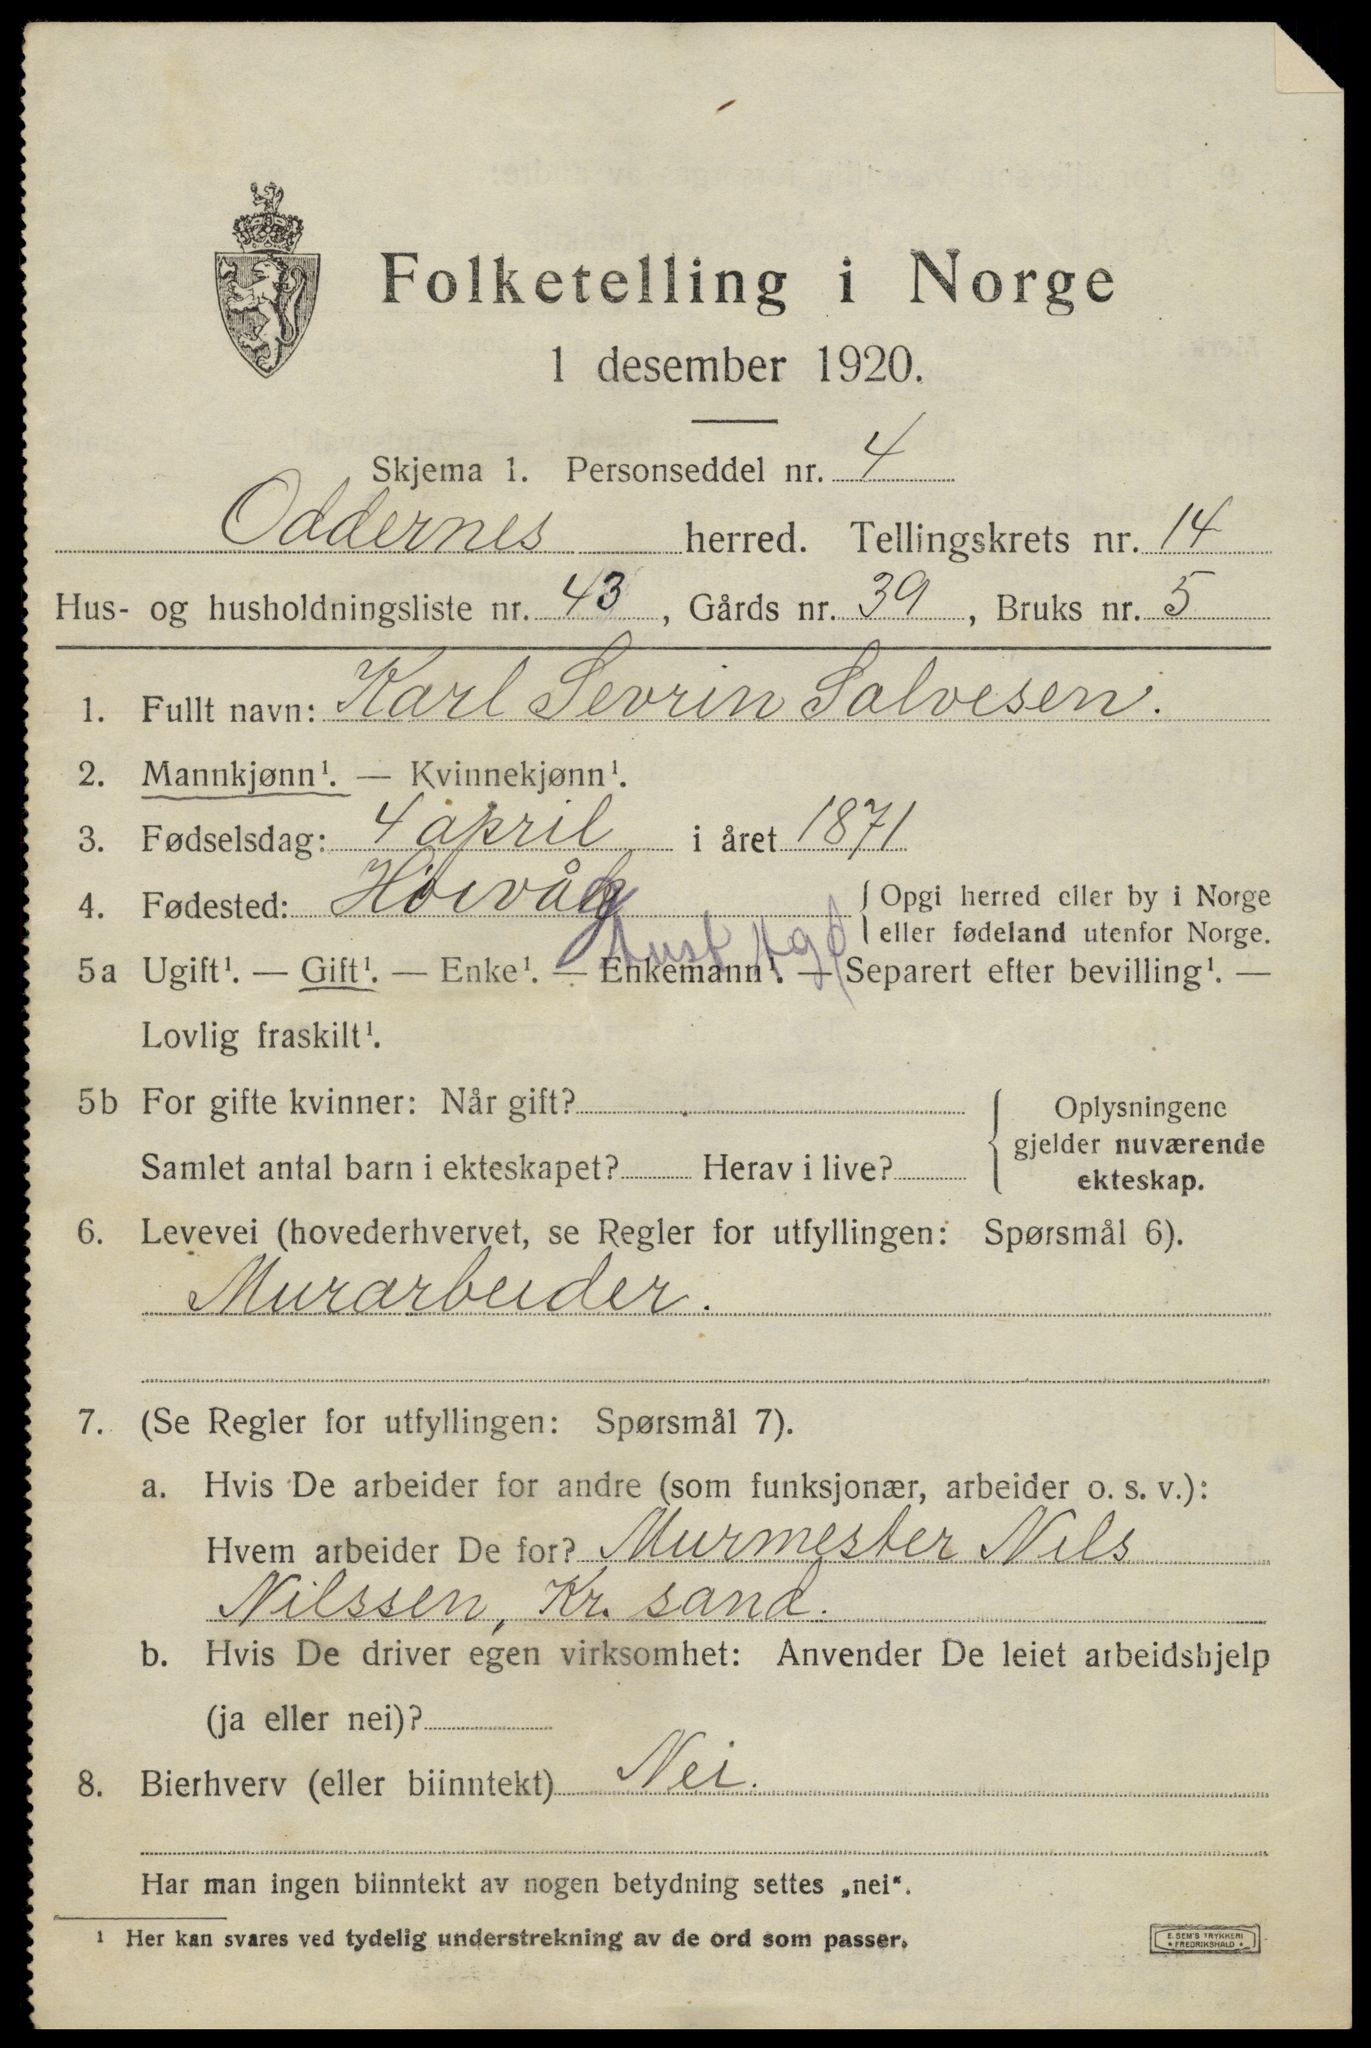 Folketelling i Norge
1 desember 1920.
Skjema 1. Personseddel nr. 4
Oddernes herred. Tellingskrets nr. 14
Hus- og husholdningsliste nr. 43, Gårds nr. 39, Bruks nr. 5
1. Fullt navn: Karl Sevrin Salvesen.
2. Mannkjønn¹. — Kvinnekjønn¹.
3. Fødselsdag: 4 april i året 1871
4. Fødested: Høivåg { Opgi herred eller by i Norge
eller fødeland utenfor Norge.
Aust Agd
5a Ugift¹. — Gift¹. — Enke¹. — Enkemann¹. — Separert efter bevilling¹. —
Lovlig fraskilt¹.
5b For gifte kvinner: Når gift? { Oplysningene
gjelder nuværende
Samlet antal barn i ekteskapet? Herav i live?
ekteskap.
6. Levevei (hovederhvervet, se Regler for utfyllingen: Spørsmål 6).
Murarbeider.
7. (Se Regler for utfyllingen: Spørsmål 7).
a. Hvis De arbeider for andre (som funksjonær, arbeider o. s. v.):
Hvem arbeider De for? Murmester Nils
Nilssen, Kr. sand.
b. Hvis De driver egen virksomhet: Anvender De leiet arbeidshjelp
(ja eller nei)?
8. Bierhverv (eller biinntekt) Nei.
Har man ingen biinntekt av nogen betydning settes „nei".
¹ Her kan svares ved tydelig understrekning av de ord som passer.
E. SEM'S TRYKKERI
* FREDRIKSHALD *